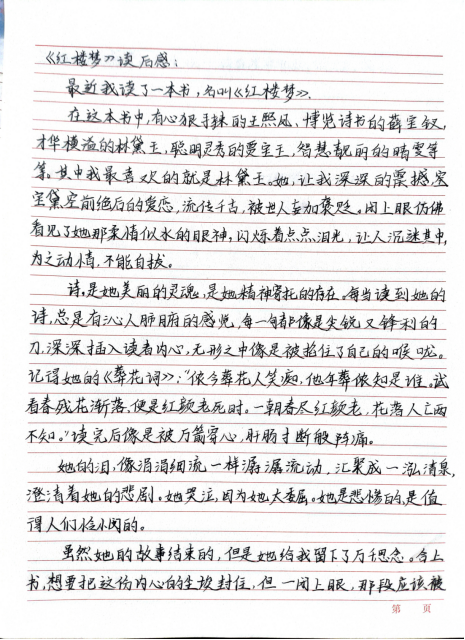 《红楼梦》读后感：
最近我读了一本书，名叫《红楼梦》.
在这本书中，有心狠手辣的王熙凤、博览诗书的薛宝钗，
才华横溢的林黛玉，聪明灵秀的贾宝玉，智慧靓丽的晴雯等
等。其中我最喜欢的就是林黛玉。她，让我深深的震撼，宝
黛空前绝后的爱恋，流传千古，被世人妄加褒贬。闭上眼仿佛
看见了她那柔情似水的眼神，闪烁着点点泪光，让人沉迷其中，
为之动情，不能自拔。
诗，是她美丽的灵魂，是她精神寄托的存在。每当读到她的
诗，总是有沁人肺腑的感觉，每一句都像是尖锐又锋利的
刀，深深插入读者内心，无形之中像是被掐住了自己的喉咙。
记得她的《葬花词》："侬今葬花人笑痴，他年葬侬知是谁。试
看春残花渐落，便是红颜老死时。一朝春尽红颜老，花落人亡两
不知。"读完后像是被万箭穿心，肝肠寸断般阵痛。
她的泪，像涓涓细流一样潺潺流动，汇聚成一泓清泉，
澄清着她的悲剧。她哭泣，因为她太委屈。她是悲惨的，是值
得人们怜悯的。
虽然她的故事结束的，但是她给我留下了万千思念。合上
书，想要把这份内心的 封住，但一闭上眼，那段应该被
第 页